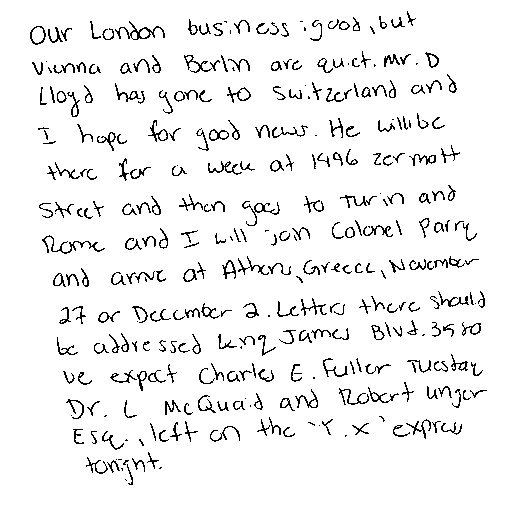 Our London business is good, but
Vienna and Berlin are quiet. Mr. D
Lloyd has gone to Switzerland and
I hope for good news. He will be
there for a week at 1496 Zermott
Street and then goes to Turin and
Rome and I will join Colonel Parry
and arrive at Athens, Greece, November
27 or December 2. Letters there should
be addressed King James Blvd. 3580
We expect Charles E. Fuller Tuesday
Dr. L McQuaid and Robert Unger
Esq., left on the 'Y.X' express
tonight.